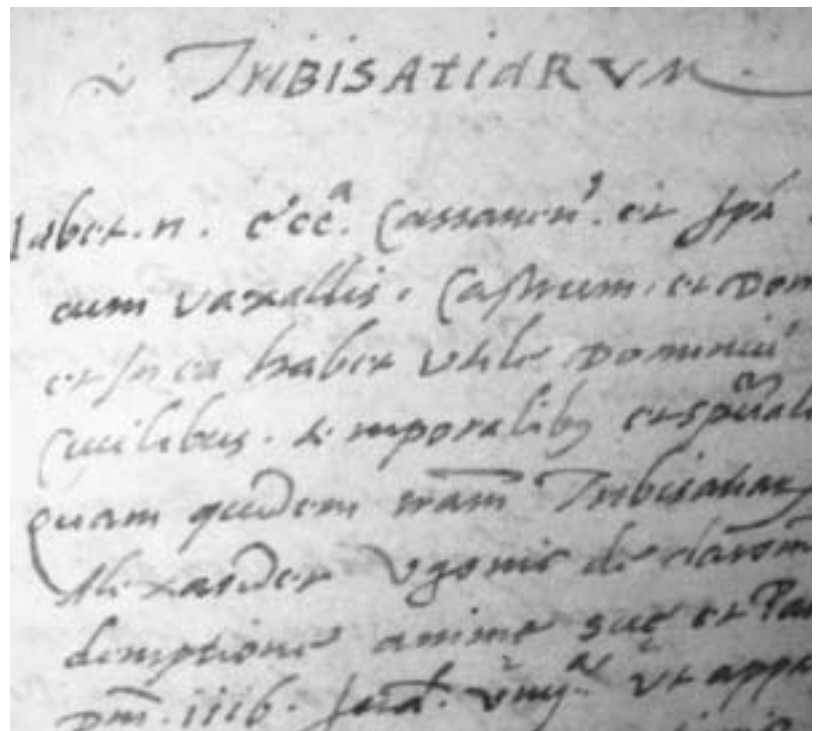 TRIBISATIARVM
habet. n. ecc.ª Cassanen. et spā
cum vaxallis. Castrum. et Dom
et in ea habet vtile Dominiū
Ciuilibus. temporalibꝰ et spūali
quam quidem trām Tribisatiar
Alexander Vgonis de clarom
demptione anime sue et Pa
Dm̄. iiib. Ind. vt appa